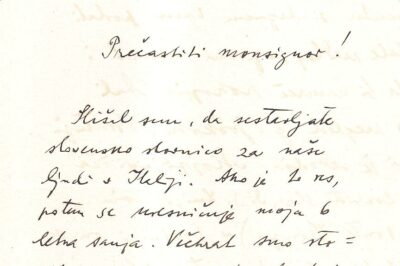 Prečastiti monsignor!
Slišal sem, da sestavljate
slovensko slovnico za naše
ljudi v Italiji. Ako je to res,
potem se uresničuje moja 6
letna sanja. Večkrat smo sto=